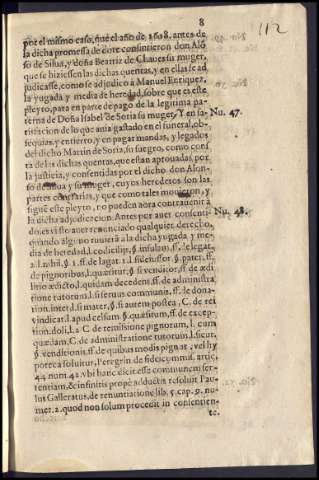 8
112
por el mismo caso, fue el año de 1608. antes de
la dicha promessa de dote consintieron don Alõ
so de Silua, y doña Beatriz de Chaues su muger,
que se hiziessen las dichas quentas, y en ellas se ad
judicasse, como se adjudicò a Manuel Enriquez,
la yugada y media de heredad, sobre que es este
pleyto, para en parte de pago de la legitima pa-
terna de Doña Isabel de Soria su muger, Y en sa- Nu. 47.
tisfacion de lo que auia gastado en el funeral, ob-
sequias, y entierro, y en pagar mandas, y legados
del dicho Martin de Soria, su suegro, como cons
ta de las dichas quentas, que estàn aprouadas por
la justicia, y consentidas por el dicho don Alon-
so de Silua y su muger, cuyos herederos son las
partes contrarias, y que como tales mouieron, y
siguẽ este pleyto, no pueden aora contrauenir à
la dicha adjudicacion. Antes por auer consenti- Nu. 48.
do es visto auer renunciado qualquier derecho,
quando alguno tuuiera à la dicha yugada y me-
dia de heredad. l. codicilijs, §. insulam, ff. de legat.
2. l. nihil, §. 1. ff. de legat. 1. l. fideiussor §. pater, ff.
de pignoribus, l. quæsitum, §. si venditor, ff. de ædi
litio ædicto, l. quidam decedens, ff. de administra
tione tutorum, l. si seruus communis, ff. de dona-
tion. inter, l. si mater, §. si autem postea, C. de rei
vindicat. l. apud celsum. §. quæsitum, ff. de excep-
tion. doli, l. 2. C. de remissione pignorum, l. cum
quædam, C. de administratione tutorum, l. sicut,
§. venditionis, ff. de quibus modis pignus, vel hy
poteca soluitur, Peregrin. de fideicommis. artic.
44. num. 42. Vbi hanc dicit esse communem sen-
tentiam, & infinitis propè adductis resoluit Pau-
lus Galleratus, de renuntiatione lib. 5. cap. 9. nu-
mer. 2. quod non solum procedit in consentien-
te.